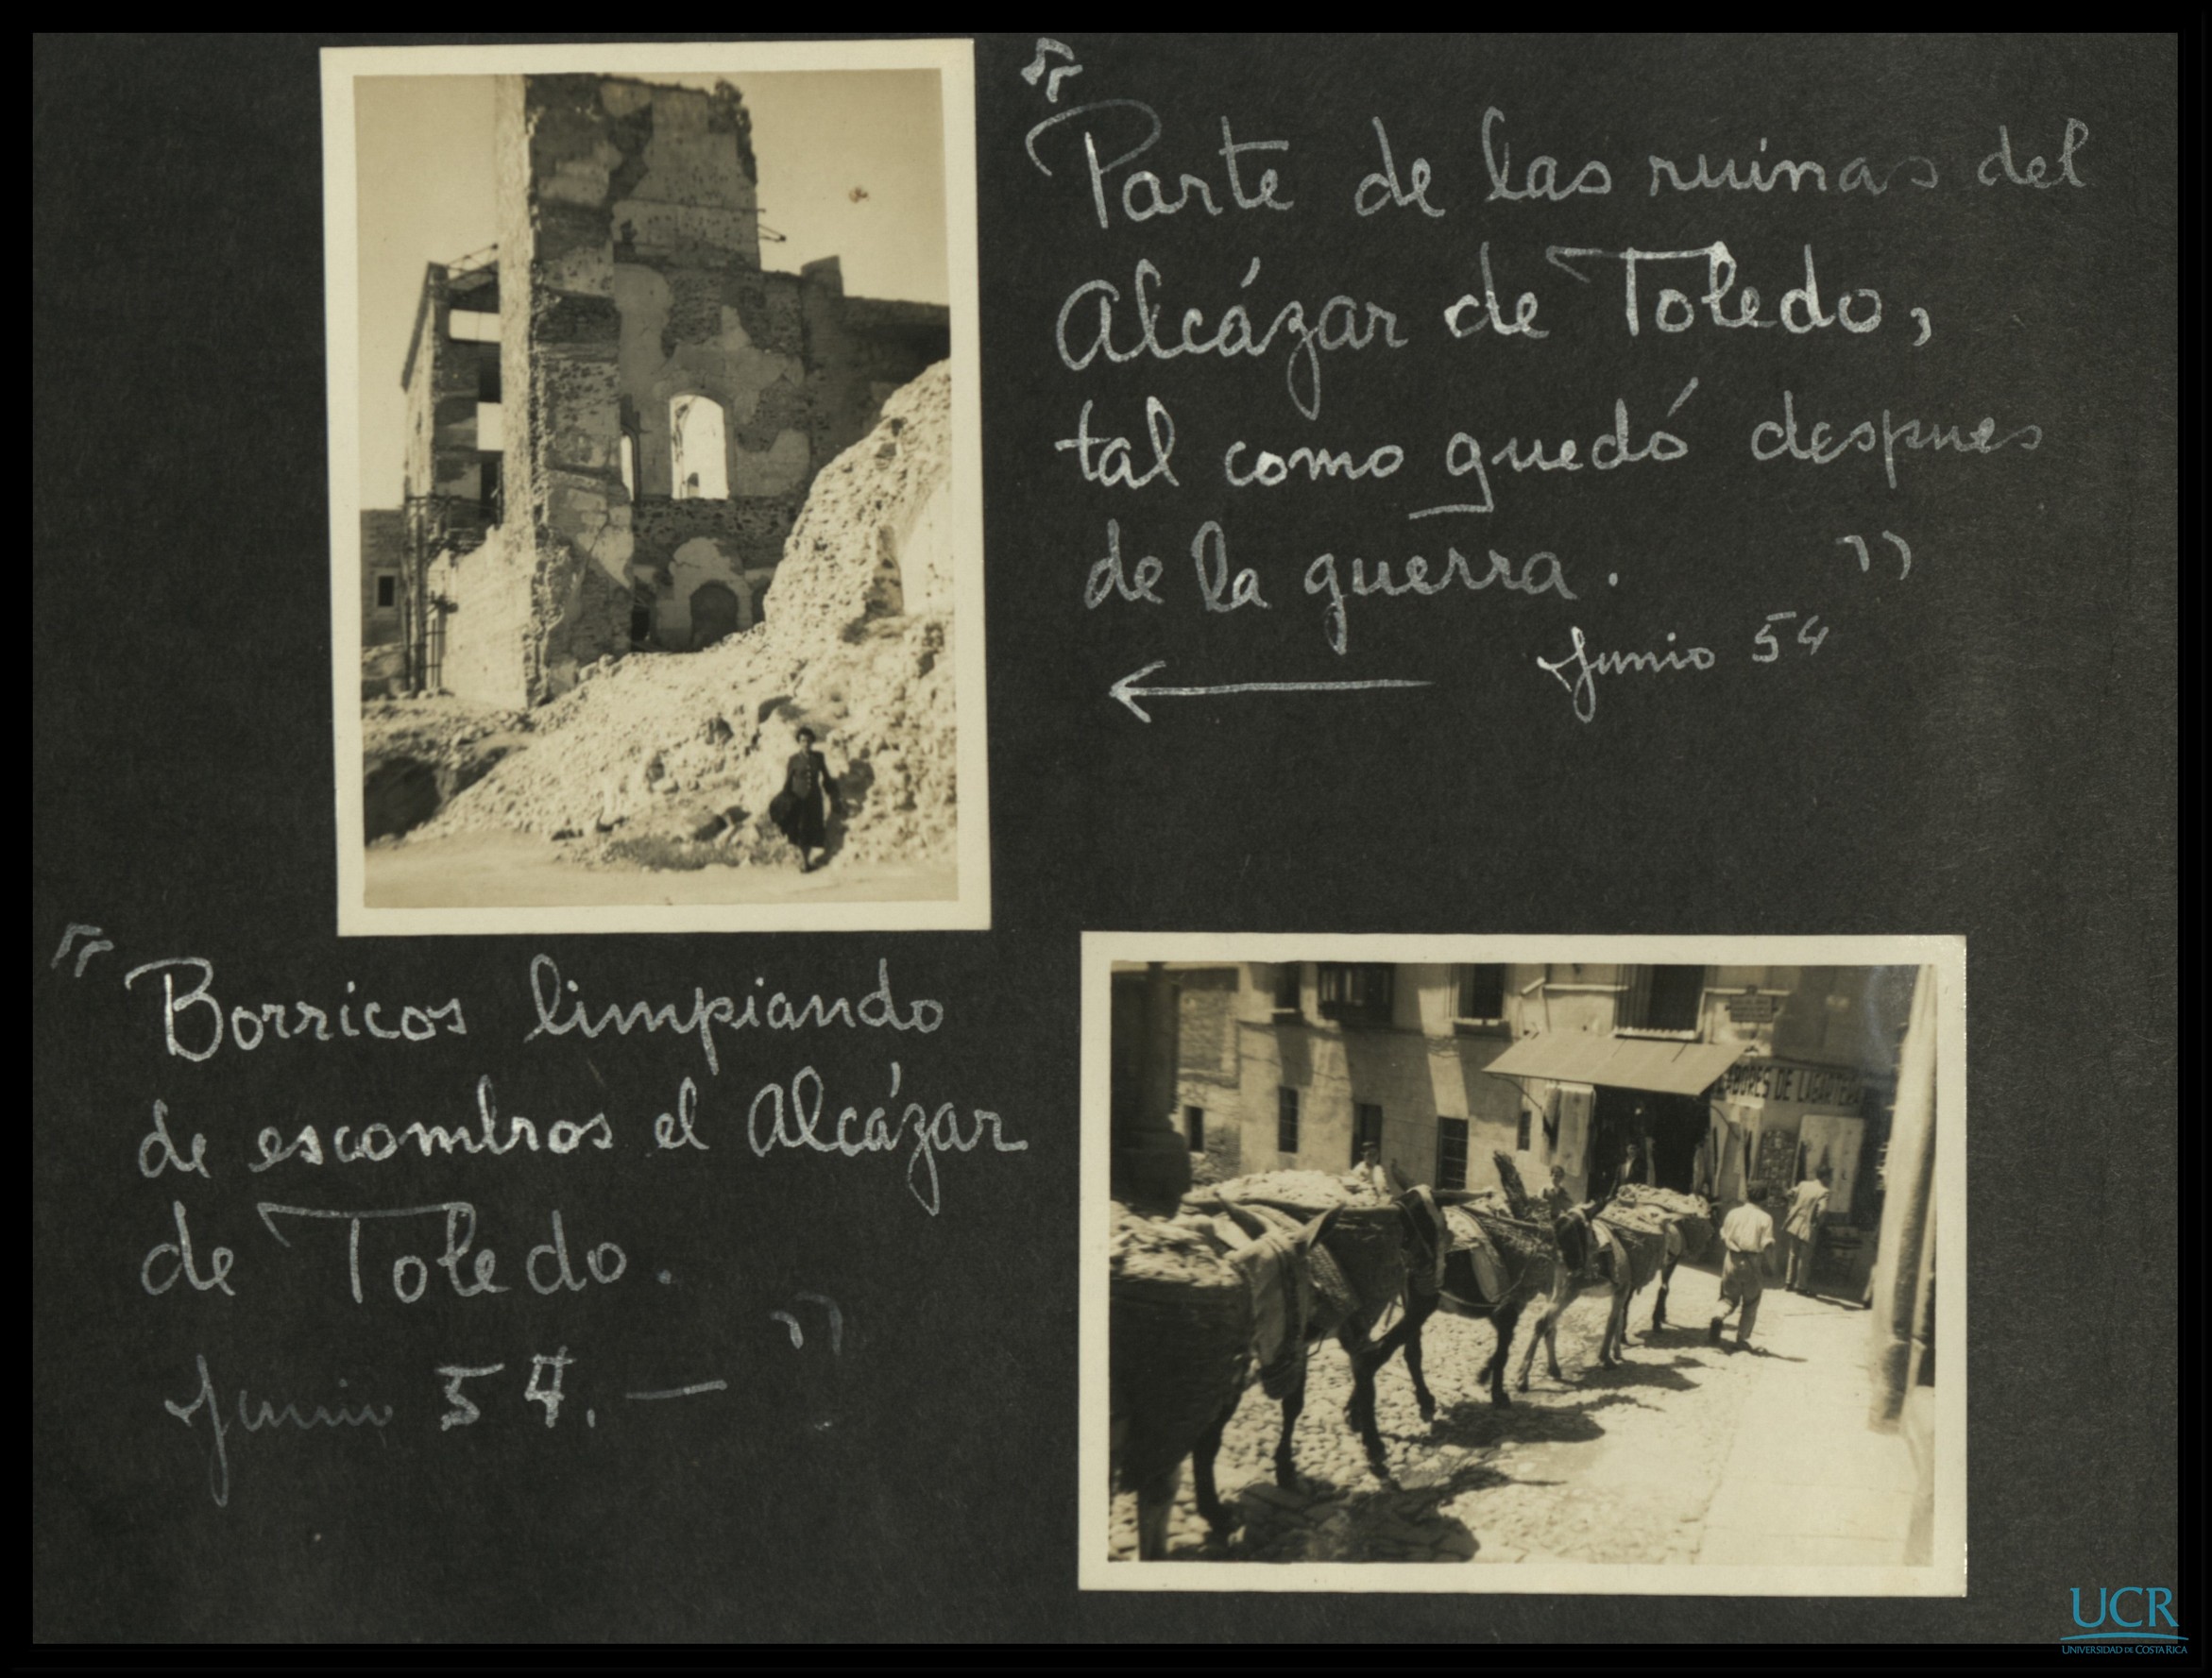 "Parte de las ruinas del
Alcázar de Toledo,
tal como quedó despues
de la guerra. "
Junio 54
"Borricos limpiando
de escombros el Alcázar
de Toledo. "
Junio 54. —
LABORES DE LAGARTERA
UCR
UNIVERSIDAD DE COSTA RICA